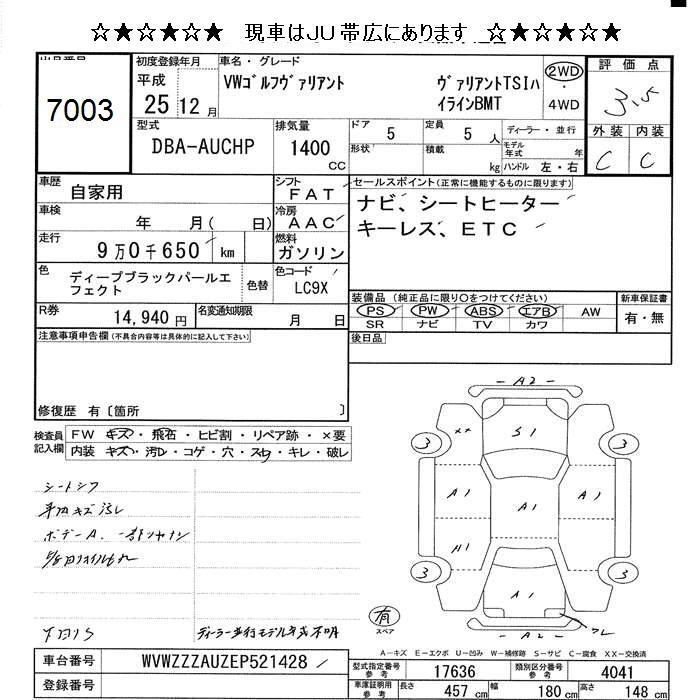 ☆★☆★☆★ 現車はJU帯広にあります ☆★☆★☆★
7003
初度登録年月
平成
25 12 月
車名・グレード
VWゴルフヴァリアント
ヴァリアントTSIハ
イラインBMT
2WD
・
4WD
評価点
3.5
外装 内装
C C
型式
DBA-AUCHP
排気量
1400
CC
ドア 5
定員 5 人
形状
積載 kg
ディーラー・並行
モデル年式 年
ハンドル 左・右
車歴
自家用
シフト
FAT
車検
年 月( 日)
冷房
AAC
走行
9万0千650 km
燃料
ガソリン
色
ディープブラックパールエ
フェクト
色替
色コード
LC9X
R券
14,940 円
名変通知期限
月 日
セールスポイント(正常に機能するものに限ります)
ナビ、シートヒーター
キーレス、ETC
装備品(純正品に限り○をつけてください)
PS PW ABS エアB AW
SR ナビ TV カワ
新車保証書
有・無
後日品
注意事項申告欄(不具合内容等は具体的に記入して下さい)
修復歴 有〔箇所 〕
検査員
記入欄
FW キズ・飛石・ヒビ割・リペア跡・×要
内装 キズ・汚レ・コゲ・穴・スレ・キレ・破レ
ディーラー並行モデル年式不明
A2
S1
××
3
3
A1
A1
A1
A1
3
3
A1
A2
有
スペア
A-キズ E-エクボ U-凹み W-補修跡 S-サビ C-腐食 XX-交換済
車台番号
WVWZZZAUZEP521428
登録番号
型式指定番号
参考
17636
類別区分番号
参考
4041
車庫証明用
参考
長さ 457 cm
幅 180 cm
高さ 148 cm